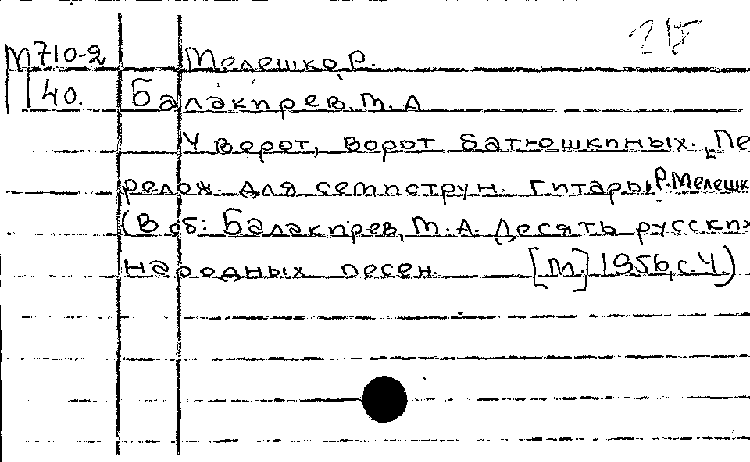 М710-2 Мелешко, Р.
40. Балакирев, М.А
У ворот, ворот батюшкиных. Пе
релож. для семиструн. гитары Р. Мелешк
(В сб: Балакирев, М.А. Десять русских
народных песен. [М.] 1956, с. 4)